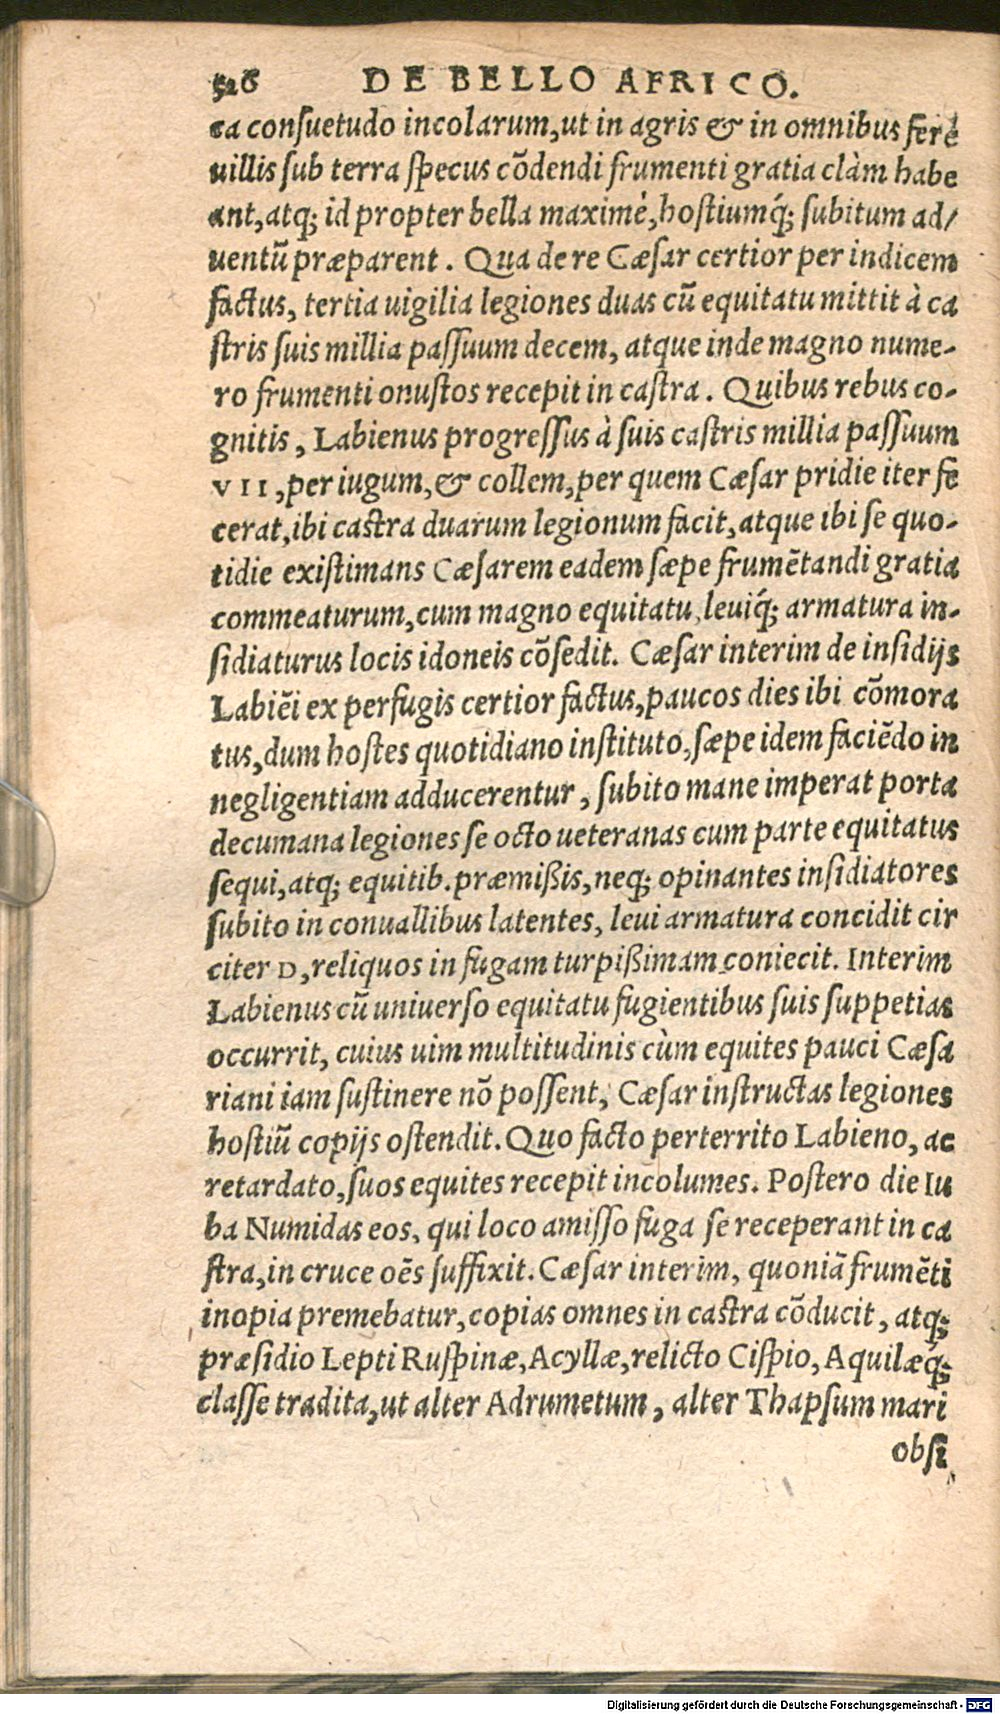 526 DE BELLO AFRICO.
ea conſuetudo incolarum,ut in agris & in omnibus ferè
uillis ſub terra ſpecus cõdendi frumenti gratia clàm habe
ant,atq; id propter bella maximè,hoſtiumq́; ſubitum ad/
uentũ præparent. Qua de re Cæſar certior per indicem
factus, tertia uigilia legiones duas cũ equitatu mittit à ca
ſtris ſuis millia paſſuum decem, atque inde magno nume-
ro frumenti onuſtos recepit in caſtra. Quibus rebus co-
gnitis, Labienus progreſſus à ſuis caſtris millia paſſuum
VII,per iugum,& collem,per quem Cæſar pridie iter fe
cerat,ibi caſtra duarum legionum facit,atque ibi ſe quo-
tidie exiſtimans Cæſarem eadem ſæpe frumẽtandi gratia
commeaturum,cum magno equitatu,leuiq́; armatura in-
ſidiaturus locis idoneis cõſedit. Cæſar interim de inſidijs
Labiẽi ex perfugis certior factus,paucos dies ibi cõmora
tus,dum hoſtes quotidiano inſtituto,ſæpe idem faciẽdo in
negligentiam adducerentur, ſubito mane imperat porta
decumana legiones ſe octo ueteranas cum parte equitatus
ſequi,atq; equitib.præmißis,neq; opinantes inſidiatores
ſubito in conuallibus latentes, leui armatura concidit cir
citer D,reliquos in fugam turpißimam coniecit. Interim
Labienus cũ uniuerſo equitatu fugientibus ſuis ſuppetias
occurrit, cuius uim multitudinis cùm equites pauci Cæſa
riani iam ſuſtinere nõ poſſent, Cæſar inſtructas legiones
hoſtiũ copijs oſtendit. Quo facto perterrito Labieno, ac
retardato,ſuos equites recepit incolumes. Poſtero die Iu
ba Numidas eos, qui loco amiſſo fuga ſe receperant in ca
ſtra,in cruce oẽs ſuffixit. Cæſar interim, quoniã frumẽti
inopia premebatur,copias omnes in caſtra cõducit, atq;
præſidio Lepti Ruſpinæ,Acyllæ,relicto Ciſpio, Aquilæq́;
claſſe tradita,ut alter Adrumetum, alter Thapſum mari
obſi
Digitalisierung gefördert durch die Deutsche Forschungsgemeinschaft - DFG